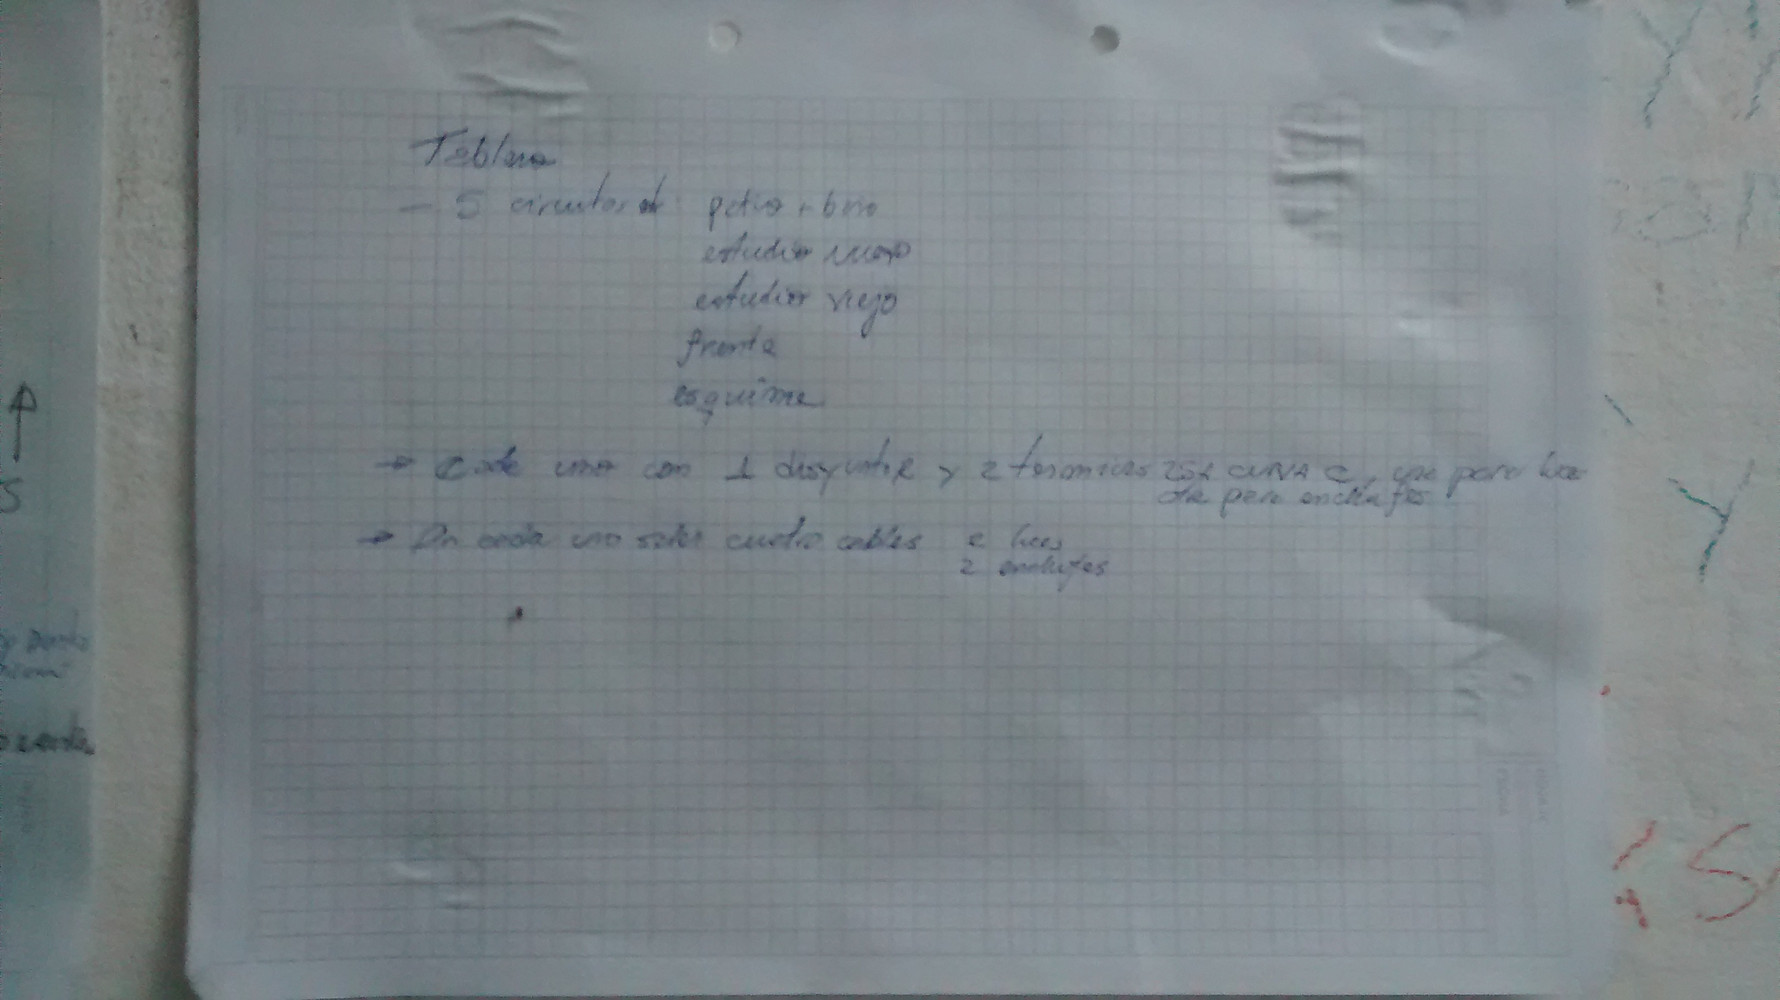 Tablero
- 5 circuitos de patio + baño
estudio nuevo
estudio viejo
frente
esquina
→ Cada uno con 1 disyuntor y 2 termicas 25A CURVA C, una para luz
otra para enchufes
→ En cada uno salen cuatro cables 2 luces
2 enchufes
S
Y